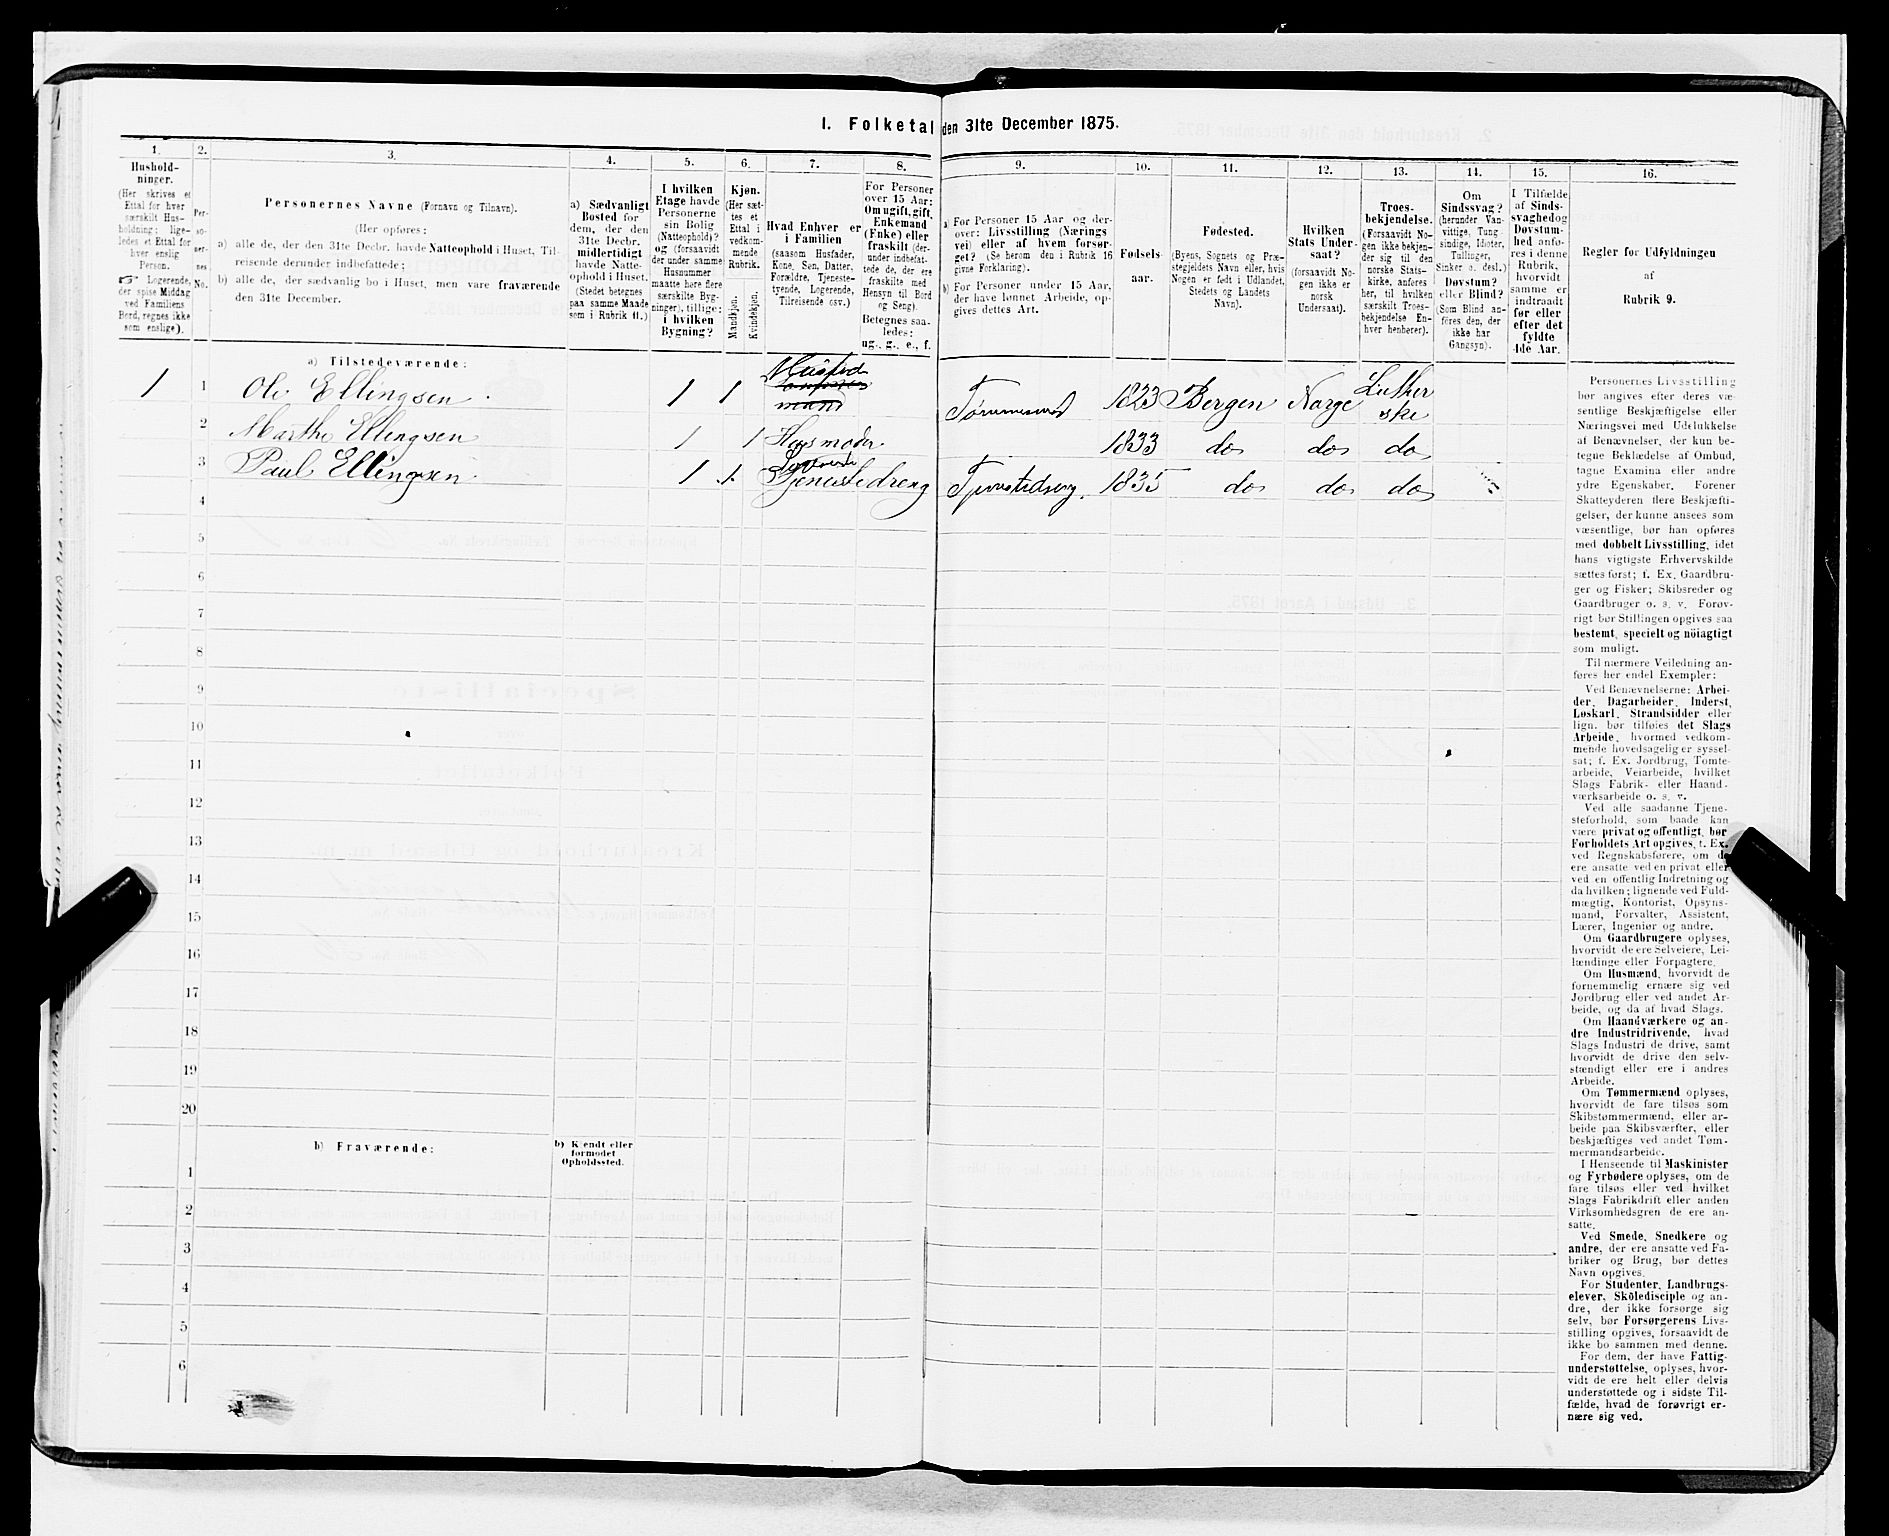 1. Folketal den 31te December 1875.
1.
Hushold-
ninger.
(Her skrives et
Ettal for hver
særskilt Hus-
holdning; lige-
ledes et Ettal for
hver enslig
Person.
☞ Logerende,
der spise Middag
ved Familiens
Bord, regnes ikke
som enslige).
2.
Per-
so-
ner-
nes
No.
3.
Personernes Navne (Fornavn og Tilnavn).
(Her opføres:
a) alle de, der den 31te Decbr. havde Natteophold i Huset, Til-
reisende derunder indbefattede;
b) alle de, der sædvanlig bo i Huset, men vare fraværende
den 31te December.
4.
a) Sædvanligt
Bosted for
dem, der den
31te Decbr.
midlertidigt
havde Natte-
ophold i Huset.
(Stedet betegnes
paa samme Maade
som i Rubrik 11.)
5.
I hvilken
Etage havde
Personerne
sin Bolig
(Natteophold)?
og (forsaavidt
der under samme
Husnummer
maatte høre flere
særskilte Byg-
ninger), tillige:
i hvilken
Bygning?
6.
Kjøn.
(Her sæt-
tes et
Ettal i
vedkom-
mende
Rubrik.
Mandkjøn.
Kvindekjøn.
7.
Hvad Enhver er
i Familien
(saasom Husfader,
Kone, Søn, Datter,
Forældre, Tjeneste-
tyende, Logerende,
Tilreisende osv.)
8.
For Personer
over 15 Aar:
Om ugift, gift,
Enkemand
(Enke) eller
fraskilt (der-
under indbefat-
tede de, der ere
fraskilte med
Hensyn til Bord
og Seng).
Betegnes saa-
ledes:
ug., g., e., f.
9.
a) For Personer 15 Aar og der-
over: Livsstilling (Nærings
vei) eller af hvem forsør-
get? (Se herom den i Rubrik 16
givne Forklaring).
b) For Personer under 15 Aar,
der have lønnet Arbeide, op-
gives dettes Art.
10.
Fødsels-
aar.
11.
Fødested.
(Byens, Sognets og Præ-
stegjeldets Navn eller, hvis
Nogen er født i Udlandet,
Stedets og Landets
Navn).
12.
Hvilken
Stats Under-
saat?
(forsaavidt No-
gen ikke er
norsk
Undersaat).
13.
Troes-
bekjendelse.
(Forsaavidt No-
gen ikke bekjen-
der sig til den
norske Stats-
kirke, anføres
her, til hvilken
særskilt Troes-
bekjendelse En-
hver henhører).
14.
Om
Sindssvag?
(herunder Van-
vittige, Tung
sindige, Idioter,
Tullinger,
Sinker o. desl.)
Døvstum?
eller Blind?
(Som Blind an-
føres den, der
ikke har
Gangsyn).
15.
I Tilfælde
af Sinds-
svaghed og
Døvstum-
hed anfø-
res i denne
Rubrik,
hvorvidt
samme er
indtraadt
før eller
efter det
fyldte
4de Aar.
16.
Regler for Udfyldningen
af
Rubrik 9.
a) Tilstedeværende:
1 1 Ole Ellingsen 1 1 1823 Bergen Norge Luther
ske
2 Marthe Ellingsen 1 1 Husmoder 1833 do do do
3 Paul Ellingsen 1 1 Tjenestedreng 1835 do do do
4
5
6
7
8
9
10
11
12
13
14
15
16
17
18
19
20
b) Fraværende:
b) Kjendt eller
formodet
Opholdssted.
1
2
3
4
5
6
Personernes Livsstilling
bør angives efter deres væ
sentlige Beskjæftigelse eller
Næringsvei med Udelukkelse
af Benævnelser, der kun be-
tegne Beklædelse af Ombud,
tagne Examina eller andre
ydre Egenskaber. Forener
Skatteyderen flere Beskjæfti-
gelser, der kunne ansees som
væsentlige, bør han opføres
med dobbelt Livsstilling, idet
hans vigtigste Erhvervskilde
sættes først; f. Ex. Gaardbru-
ger og Fisker; Skibsreder og
Gaardbruger o. s. v. Forøv-
rigt bør Stillingen opgives saa
bestemt, specielt og nöiagtigt
som muligt.
Til nærmere Veiledning an-
føres her endel Exempler:
Ved Benævnelserne: Arbei-
der, Dagarbeider, Inderst,
Løskarl, Strandsidder eller
lign. bør tilføies det Slags
Arbeide, hvormed vedkom-
mende hovedsagelig er syssel-
sat; f. Ex. Jordbrug, Tomte-
arbeide, Veiarbeide, hvilket
Slags Fabrik- eller Haand-
værksarbeide o. s. v.
Ved alle saadanne Tjene-
steforhold, som baade kan
være privat og offentligt, bør
Forholdets Art opgives, t. Ex.
ved Regnskabsførere, om de
ere ansatte ved en privat eller
ved en offentlig Indretning og
da hvilken; lignende ved Fuld-
mægtig, Kontorist, Opsyns-
mand, Forvalter, Assistent,
Lærer, Ingeniør og andre.
Om Gaardbrugere oplyses,
hvorvidt de ere Selveiere, Lei-
lændinge eller Forpagtere.
Om Husmænd, hvorvidt de
fornemmelig ernære sig ved
Jordbrug eller ved andet Ar-
beide, og da af hvad Slags.
Om Haandværkere og an-
dre Industridrivende, hvad
Slags Industri de drive, samt
hvorvidt de drive den selv-
stændigt eller ere i andres
Arbeide.
Om Tømmermænd oplyses,
hvorvidt de fare tilsøs som
Skibstømmermænd, eller ar-
beide paa Skibsværfter, eller
beskjæftiges ved andet Tøm-
mermandsarbeide.
I Henseende til Maskinister
og Fyrbødere oplyses, om de
fare tilsøs eller ved hvilket
Slags Fabrikdrift eller anden
Virksomhedsgren de ere an-
satte.
Ved Smede, Snedkere og
andre, der ere ansatte ved Fa-
briker og Brug, bør dettes
Navn opgives.
For Studenter, Landbrugs-
elever, Skõledisciple og an-
dre, der ikke forsørge sig
selv, bør Forsørgerens Livs-
stilling opgives, forsaavidt de
ikke bo sammen med denne.
For dem, der have Fattig-
understøttelse, oplyses, hvor-
vidt de ere helt eller delvis
understøttede og i sidste Til-
fælde, hvad de forøvrigt er-
nære sig ved.